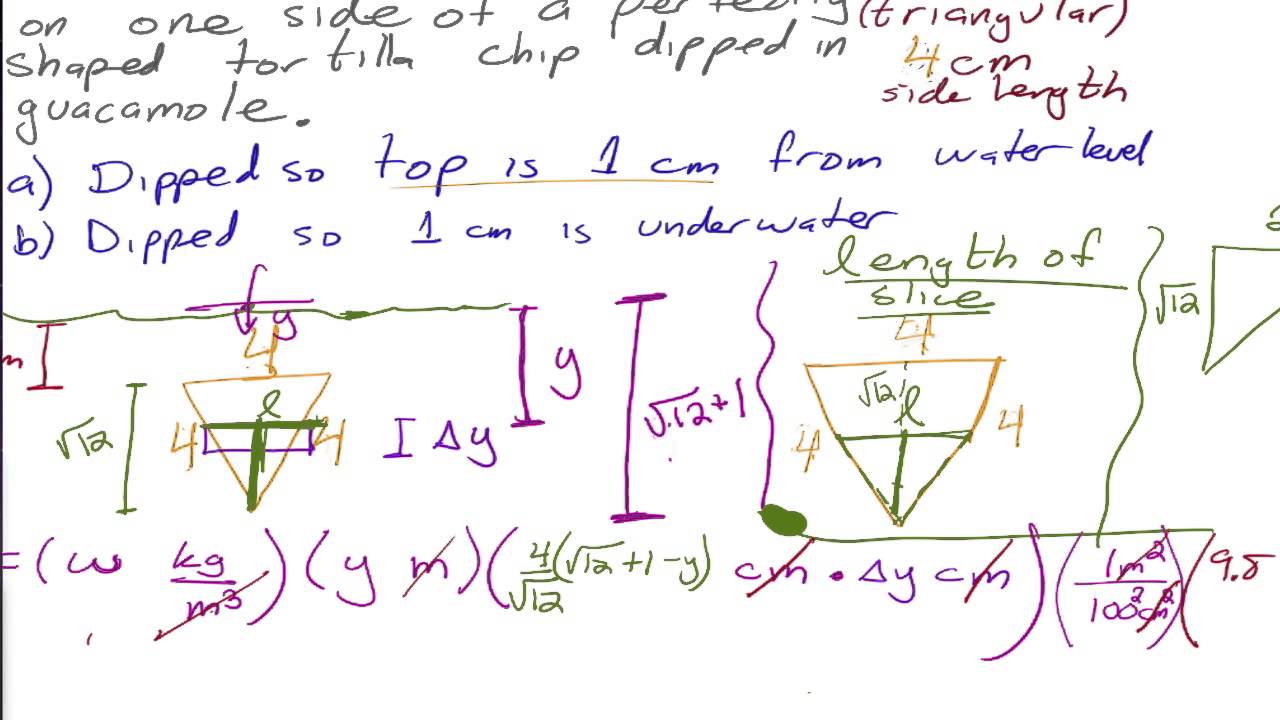 on one side of a perfectly (triangular)
shaped tortilla chip dipped in 4 cm
guacamole. side length
a) Dipped so top is 1 cm from water level
b) Dipped so 1 cm is underwater
length of
slice
y
4
4
√12
m
l
y
√12 + 1
√12
l
√12
4 4
I Δy
4 4
= (ω kg/m³)(y m)(4/√12 (√12 + 1 - y) cm · Δy cm)(1m²/100²cm²)(9.8